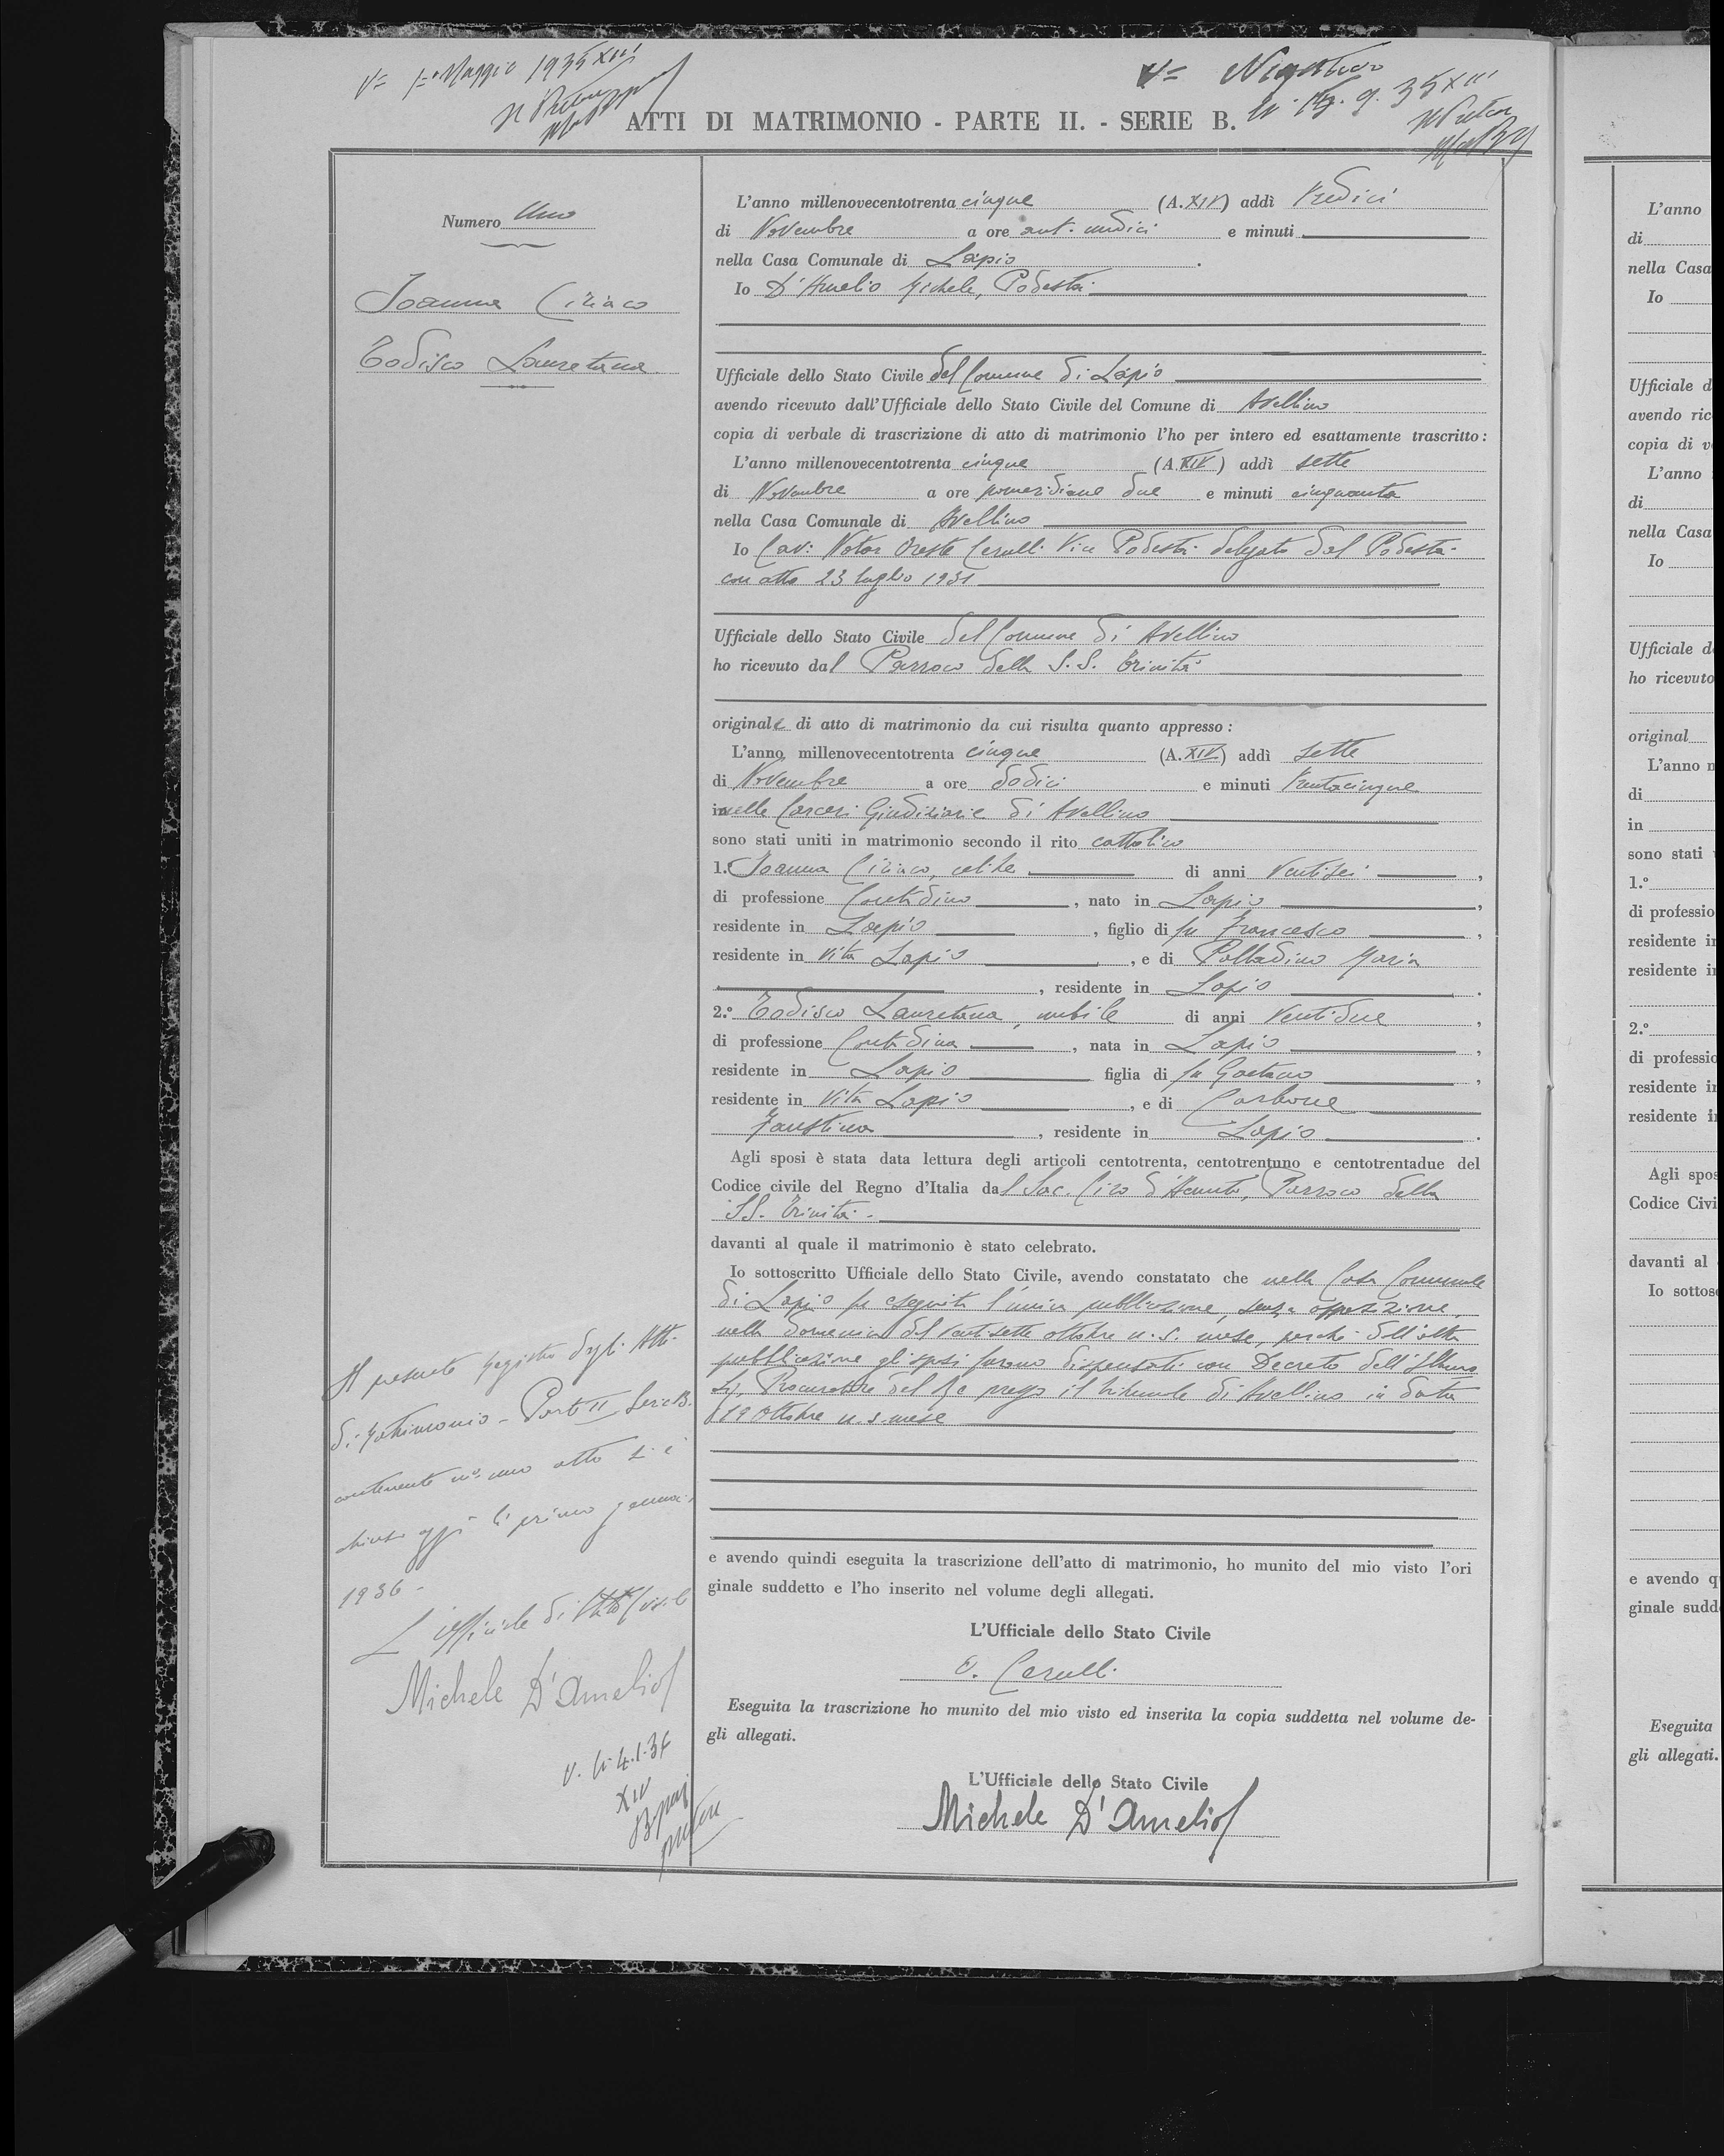 V= 1= Maggio 1935 XIII
Il Pretore
V= Negativo
li 15. 9. 35 XIII
Il Pretore
ATTI DI MATRIMONIO - PARTE II. - SERIE B.
Numero Uno
Joanna Ciriaco
Todisco Lauretana
L'anno millenovecentotrenta cinque (A. XIV) addì tredici
di Novembre a ore ant. undici e minuti
nella Casa Comunale di Lapio .
Io D'Amelio Michele, Podestà
Ufficiale dello Stato Civile del Comune di Lapio
avendo ricevuto dall'Ufficiale dello Stato Civile del Comune di Avellino
copia di verbale di trascrizione di atto di matrimonio l'ho per intero ed esattamente trascritto:
L'anno millenovecentotrenta cinque (A. XIV) addì sette
di Novembre a ore pomeridiane due e minuti cinquanta
nella Casa Comunale di Avellino
Io Cav: Notar Oreste Cerulli Vice Podestà delegato dal Podestà
con atto 23 luglio 1931
Ufficiale dello Stato Civile del Comune di Avellino
ho ricevuto dal Parroco della S.S. Trinità
originale di atto di matrimonio da cui risulta quanto appresso:
L'anno millenovecentotrenta cinque (A. XIV) addì sette
di Novembre a ore dodici e minuti trentacinque
nelle Carceri Giudiziarie di Avellino
sono stati uniti in matrimonio secondo il rito cattolico
1.° Joanna Ciriaco, celibe di anni ventisei ,
di professione Contadino , nato in Lapio ,
residente in Lapio , figlio di fu Francesco ,
residente in vita Lapio , e di Palladino Maria
, residente in Lapio .
2.° Todisco Lauretana, nubile di anni ventidue ,
di professione Contadina , nata in Lapio ,
residente in Lapio figlia di fu Gaetano ,
residente in vita Lapio , e di Carbone
Faustina , residente in Lapio .
Agli sposi è stata data lettura degli articoli centotrenta, centotrentuno e centotrentadue del
Codice civile del Regno d'Italia dal Sac. Ciro d'Acunto, Parroco della
SS. Trinità -
davanti al quale il matrimonio è stato celebrato.
Io sottoscritto Ufficiale dello Stato Civile, avendo constatato che nella Casa Comunale
di Lapio fu eseguita l'unica pubblicazione, senza opposizione,
nella domenica del ventisette ottobre u. s. mese, perchè dell'altra
pubblicazione gli sposi furono dispensati con Decreto dell'Illmo
Sig. Procuratore del Re presso il tribunale di Avellino in data
19 ottobre u. s. mese
e avendo quindi eseguita la trascrizione dell'atto di matrimonio, ho munito del mio visto l'ori
ginale suddetto e l'ho inserito nel volume degli allegati.
L'Ufficiale dello Stato Civile
O. Cerulli
Eseguita la trascrizione ho munito del mio visto ed inserita la copia suddetta nel volume de-
gli allegati.
L'Ufficiale dello Stato Civile
Michele D'Amelio
Il presente registro degli Atti
di Matrimonio - Parte II Serie B.
contenente n° uno atto si è
chiuso oggi li primo gennaio
1936 -
L'ufficiale di Stato Civile
Michele D'Amelio
V. li 4.1.36
XIV
Pretore
L'anno
di
nella Casa
Io
Ufficiale d
avendo ric
copia di v
L'anno
di
nella Casa
Io
Ufficiale d
ho ricevuto
original
L'anno m
di
in
sono stati
1.°
di professio
residente in
residente in
2.°
di professio
residente in
residente in
Agli spos
Codice Civi
davanti al
Io sottos
e avendo q
ginale sudd
Eseguita
gli allegati.